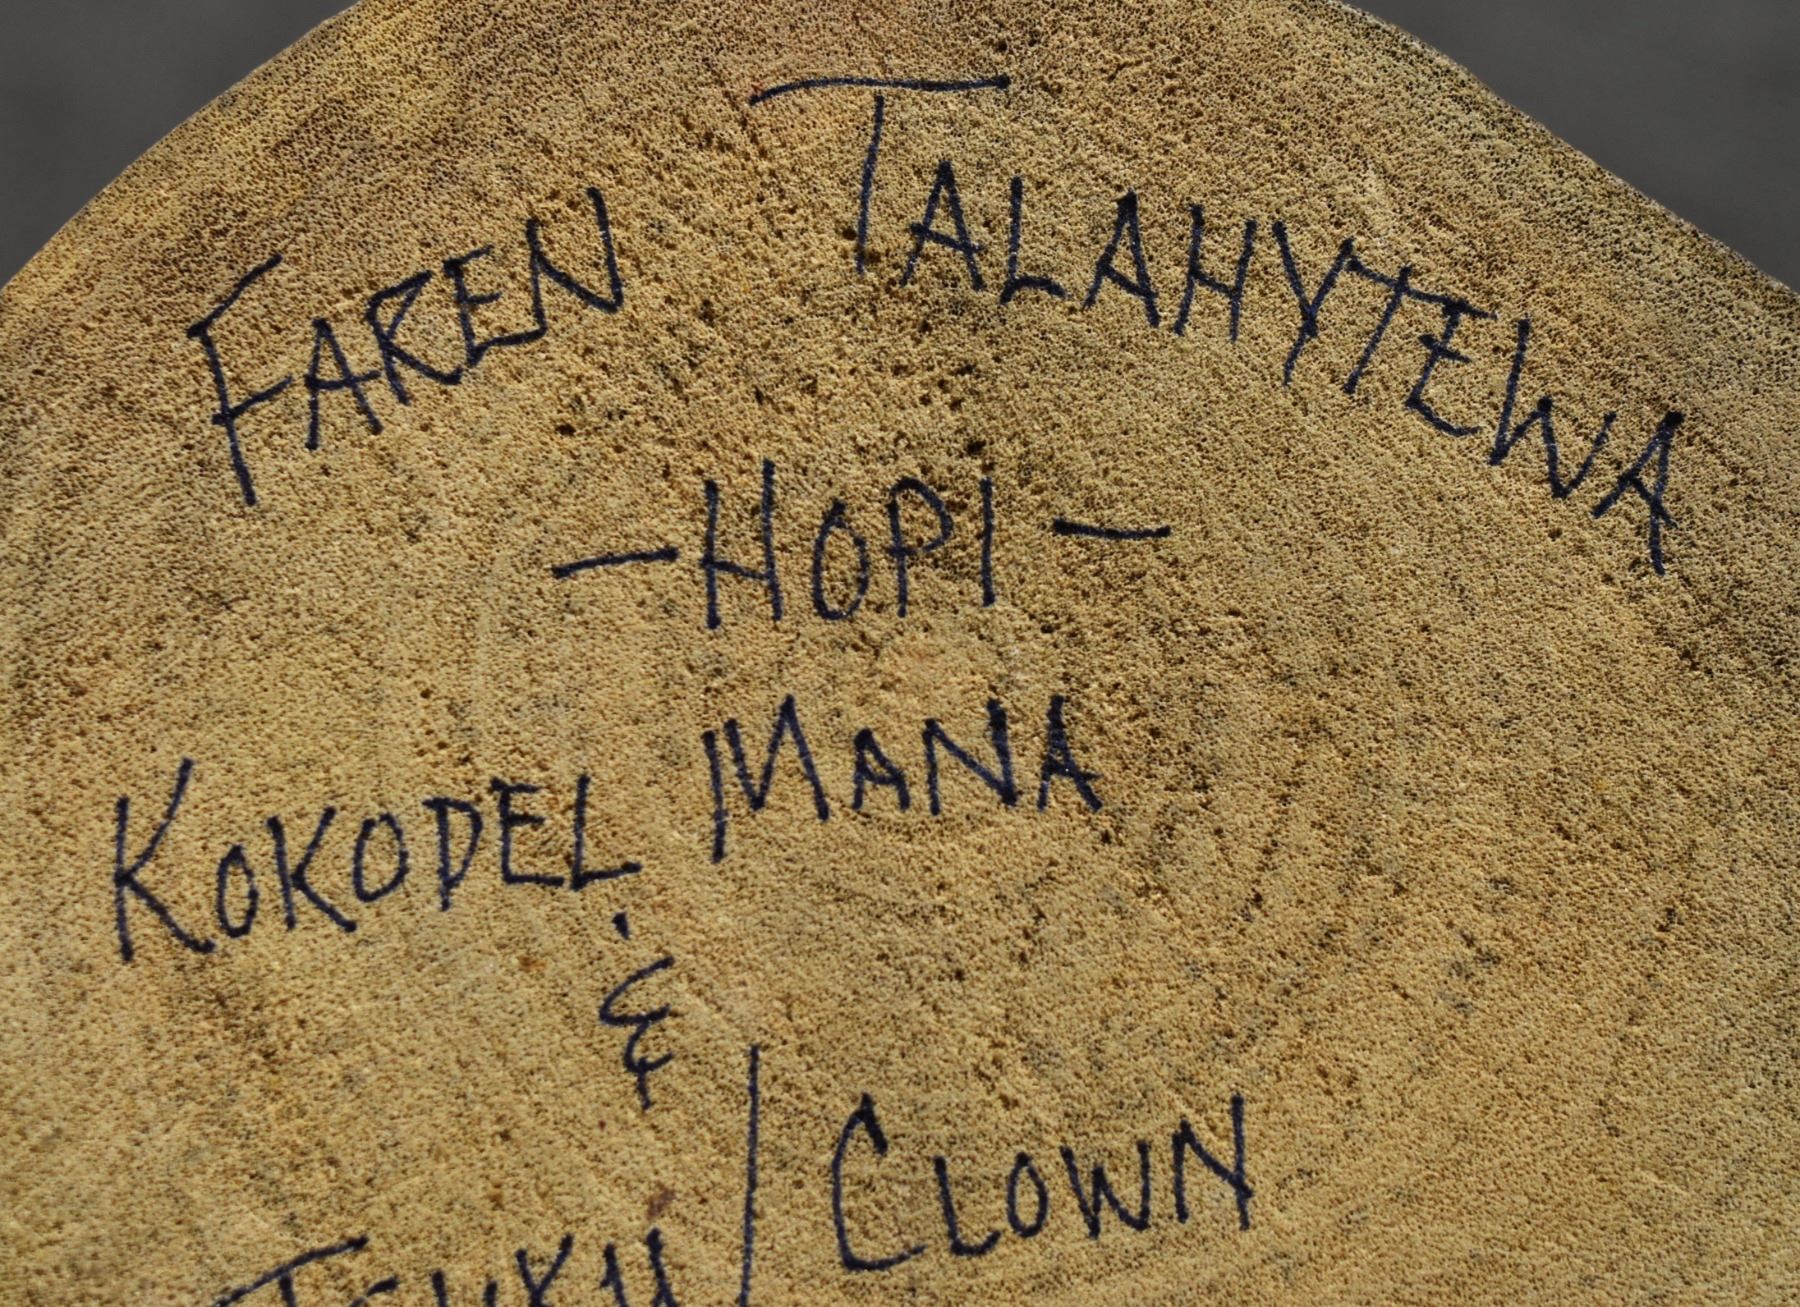 FAREN TALAHYTEWA
-HOPI-
KOKODEL MANA
&
TSUKU/CLOWN